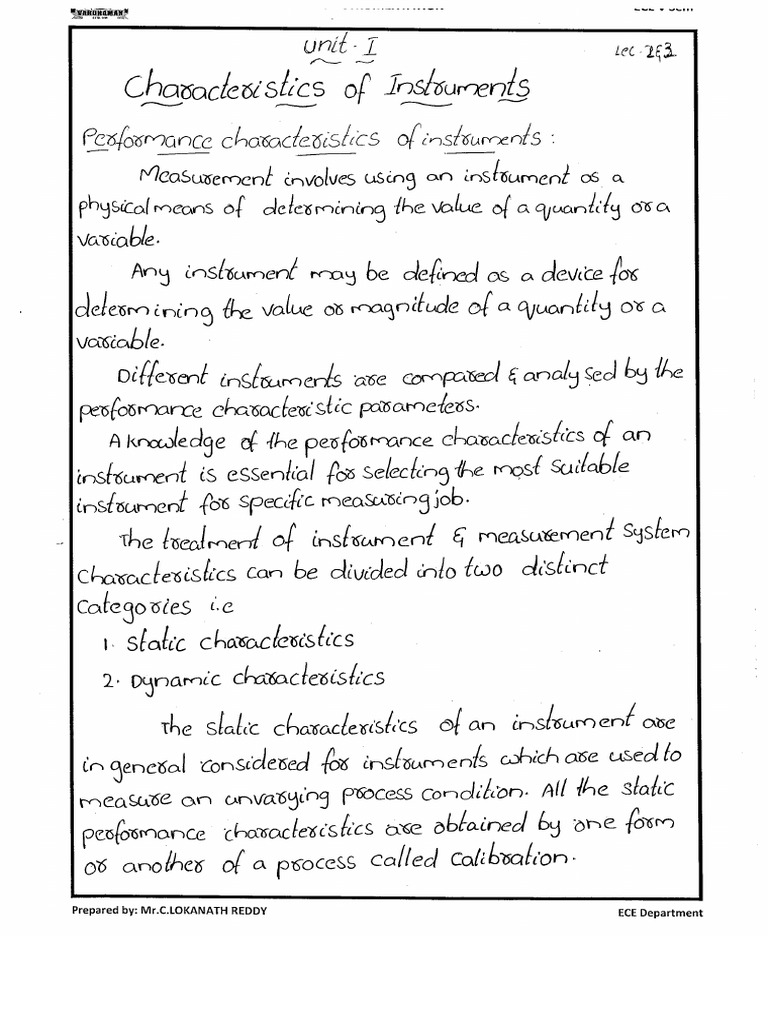 VARDHAMAN
ECE V Sem
Unit - I
Lec-2&3
Characteristics of Instruments
Performance characteristics of instruments :
Measurement involves using an instrument as a
physical means of determining the value of a quantity or a
variable.
Any instrument may be defined as a device for
determining the value or magnitude of a quantity or a
variable.
Different instruments are compared & analysed by the
performance characteristic parameters.
A knowledge of the performance characteristics of an
instrument is essential for selecting the most suitable
instrument for specific measuring job.
The treatment of instrument & measurement system
characteristics can be divided into two distinct
categories i.e
1. Static characteristics
2. Dynamic characteristics
The static characteristics of an instrument are
in general considered for instruments which are used to
measure an unvarying process condition. All the static
performance characteristics are obtained by one form
or another of a process called calibration.
Prepared by: Mr.C.LOKANATH REDDY
ECE Department